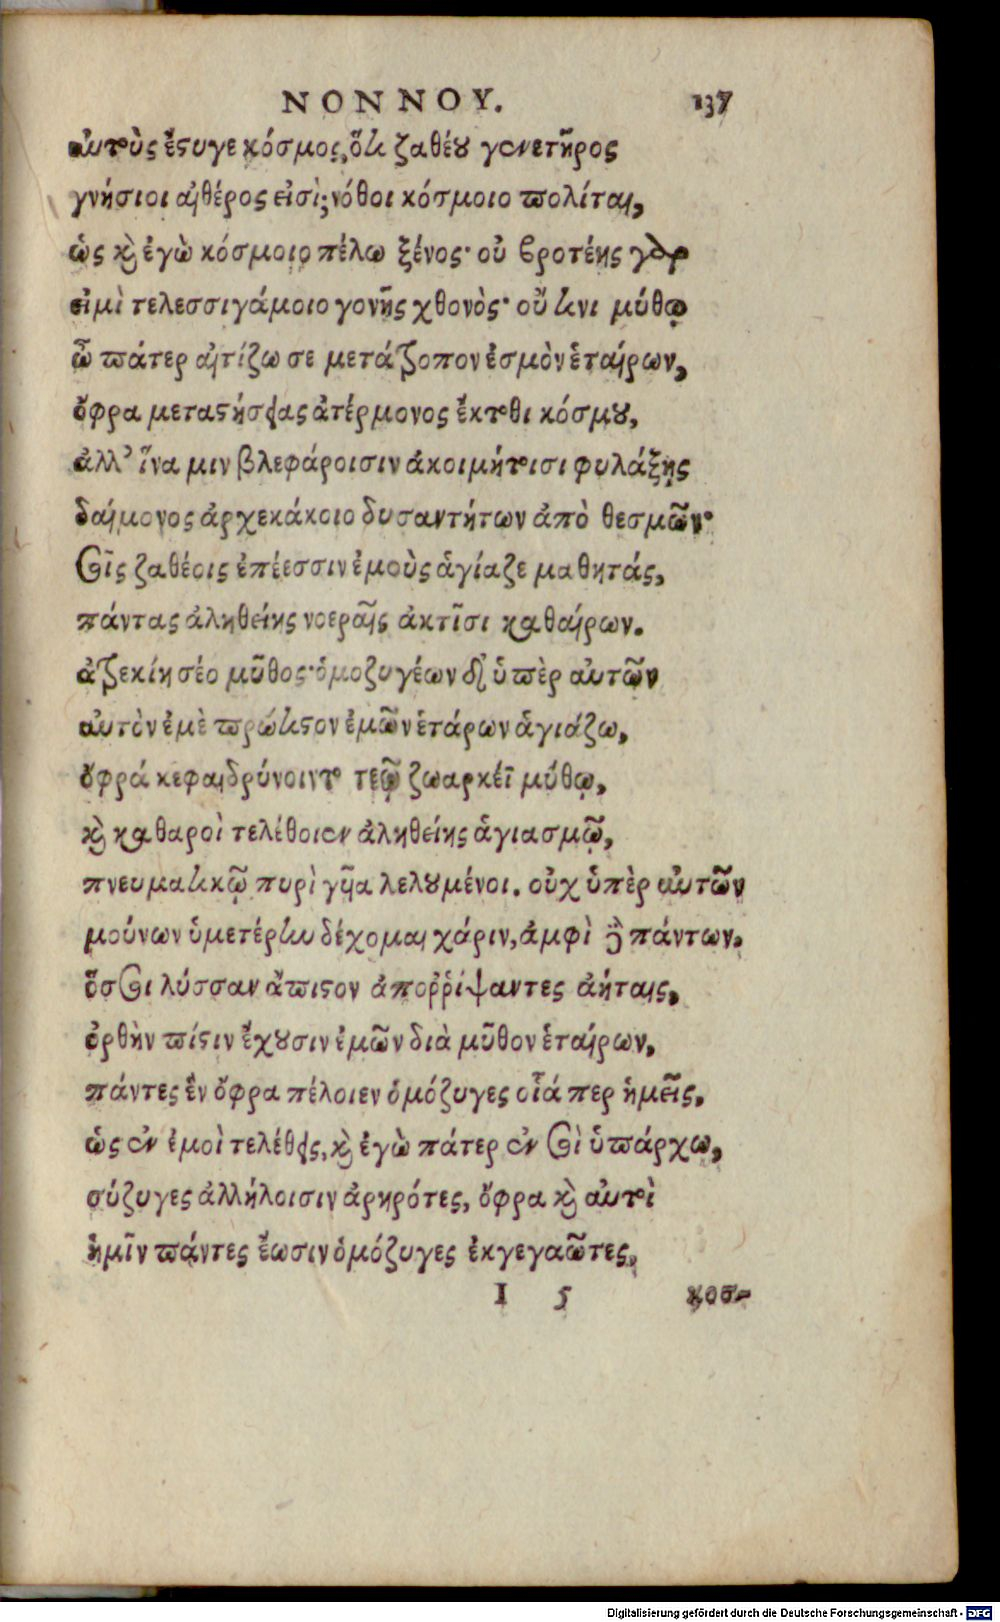 ΝΟΝΝΟΥ. 137
αὐτοὺς ἔστυγε κόσμος, ὅτι ζαθέου γενετῆρος
γνήσιοι αἰθέρος εἰσὶ; νόθοι κόσμοιο πολίται,
ὡς καὶ ἐγὼ κόσμοιο πέλω ξένος· οὐ βροτέης γὰρ
εἰμὶ τελεσσιγάμοιο γονῆς χθονὸς· οὔ τινι μύθῳ
ὦ πάτερ αἰτίζω σε μετάτροπον ἑσμὸν ἑταίρων,
ὄφρα μεταστήσειας ἀτέρμονος ἔκτοθι κόσμου,
ἀλλ' ἵνα μιν βλεφάροισιν ἀκοιμήτοισι φυλάξῃς
δαίμονος ἀρχεκάκοιο δυσαντήτων ἀπὸ θεσμῶν·
τοῖς ζαθέοις ἐπέεσσιν ἐμοὺς ἁγίαζε μαθητάς,
πάντας ἀληθείης νοεραῖς ἀκτῖσι καθαίρων.
ἀτρεκίη σέο μῦθος· ὁμοζυγέων δ' ὑπὲρ αὐτῶν
αὐτὸν ἐμὲ πρώτιστον ἐμῶν ἑτάρων ἁγιάζω,
ὄφρά κε φαιδρύνοιντο τεῷ ζωαρκέϊ μύθῳ,
καὶ καθαροὶ τελέθοιεν ἀληθείης ἁγιασμῷ,
πνευματικῷ πυρὶ γῆα λελουμένοι. οὐχ ὑπὲρ αὐτῶν
μούνων ὑμετέρην δέχομαι χάριν, ἀμφὶ δὲ πάντων.
ὅσσοι λύσσαν ἄπιστον ἀποῤῥίψαντες ἀήταις,
ὀρθὴν πίστιν ἔχουσιν ἐμῶν διὰ μῦθον ἑταίρων,
πάντες ἓν ὄφρα πέλοιεν ὁμόζυγες οἷά περ ἡμεῖς,
ὡς ἐν ἐμοὶ τελέθεις, καὶ ἐγὼ πάτερ ἐν σοὶ ὑπάρχω,
σύζυγες ἀλλήλοισιν ἀρηρότες, ὄφρα καὶ αὐτοὶ
ἡμῖν πάντες ἔωσιν ὁμόζυγες ἐκγεγαῶτες,
I 5 κοσ-
Digitalisierung gefördert durch die Deutsche Forschungsgemeinschaft - DFG